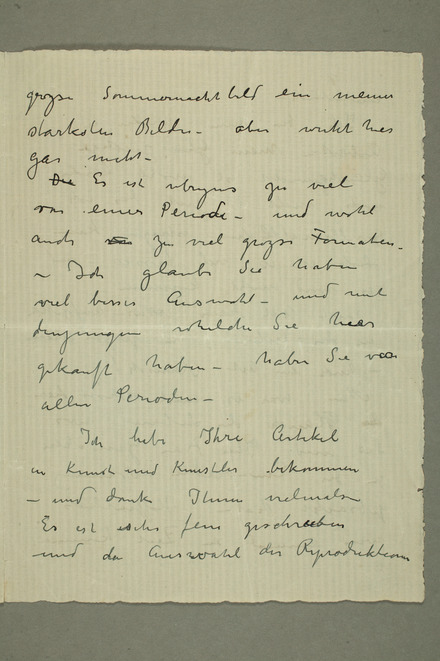 grosse Sommernachtbild ein meiner
starksten Bilder – aber wirkt hier
gar nicht –
Es ist ubrigens zu viel
von einer Periode – und wohl
auch zu viel grosse Formaten –
– Ich glaube Sie haben
viel besser Auswahl – und mit
denjenigen welche Sie hier
gekauft haben – haben Sie von
allen Perioden –
Ich habe Ihre Artikel
in Kunst und Künstler bekommen
– und danke Ihnen vielmals
Es ist sehr fein geschrieben
und die Auswahl der Reproduktionen